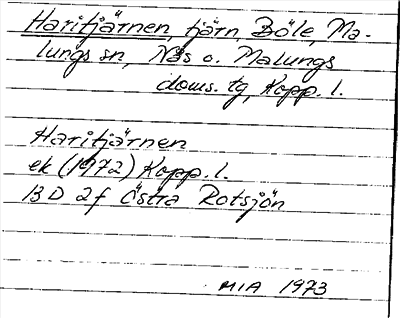 Haritjärnen, tjärn, Böle, Ma-
lungs sn, Näs o. Malungs
doms. tg, Kopp. l.
Haritjärnen
ek (1972) Kopp. l.
13D 2f Östra Rotsjön
MIA 1973